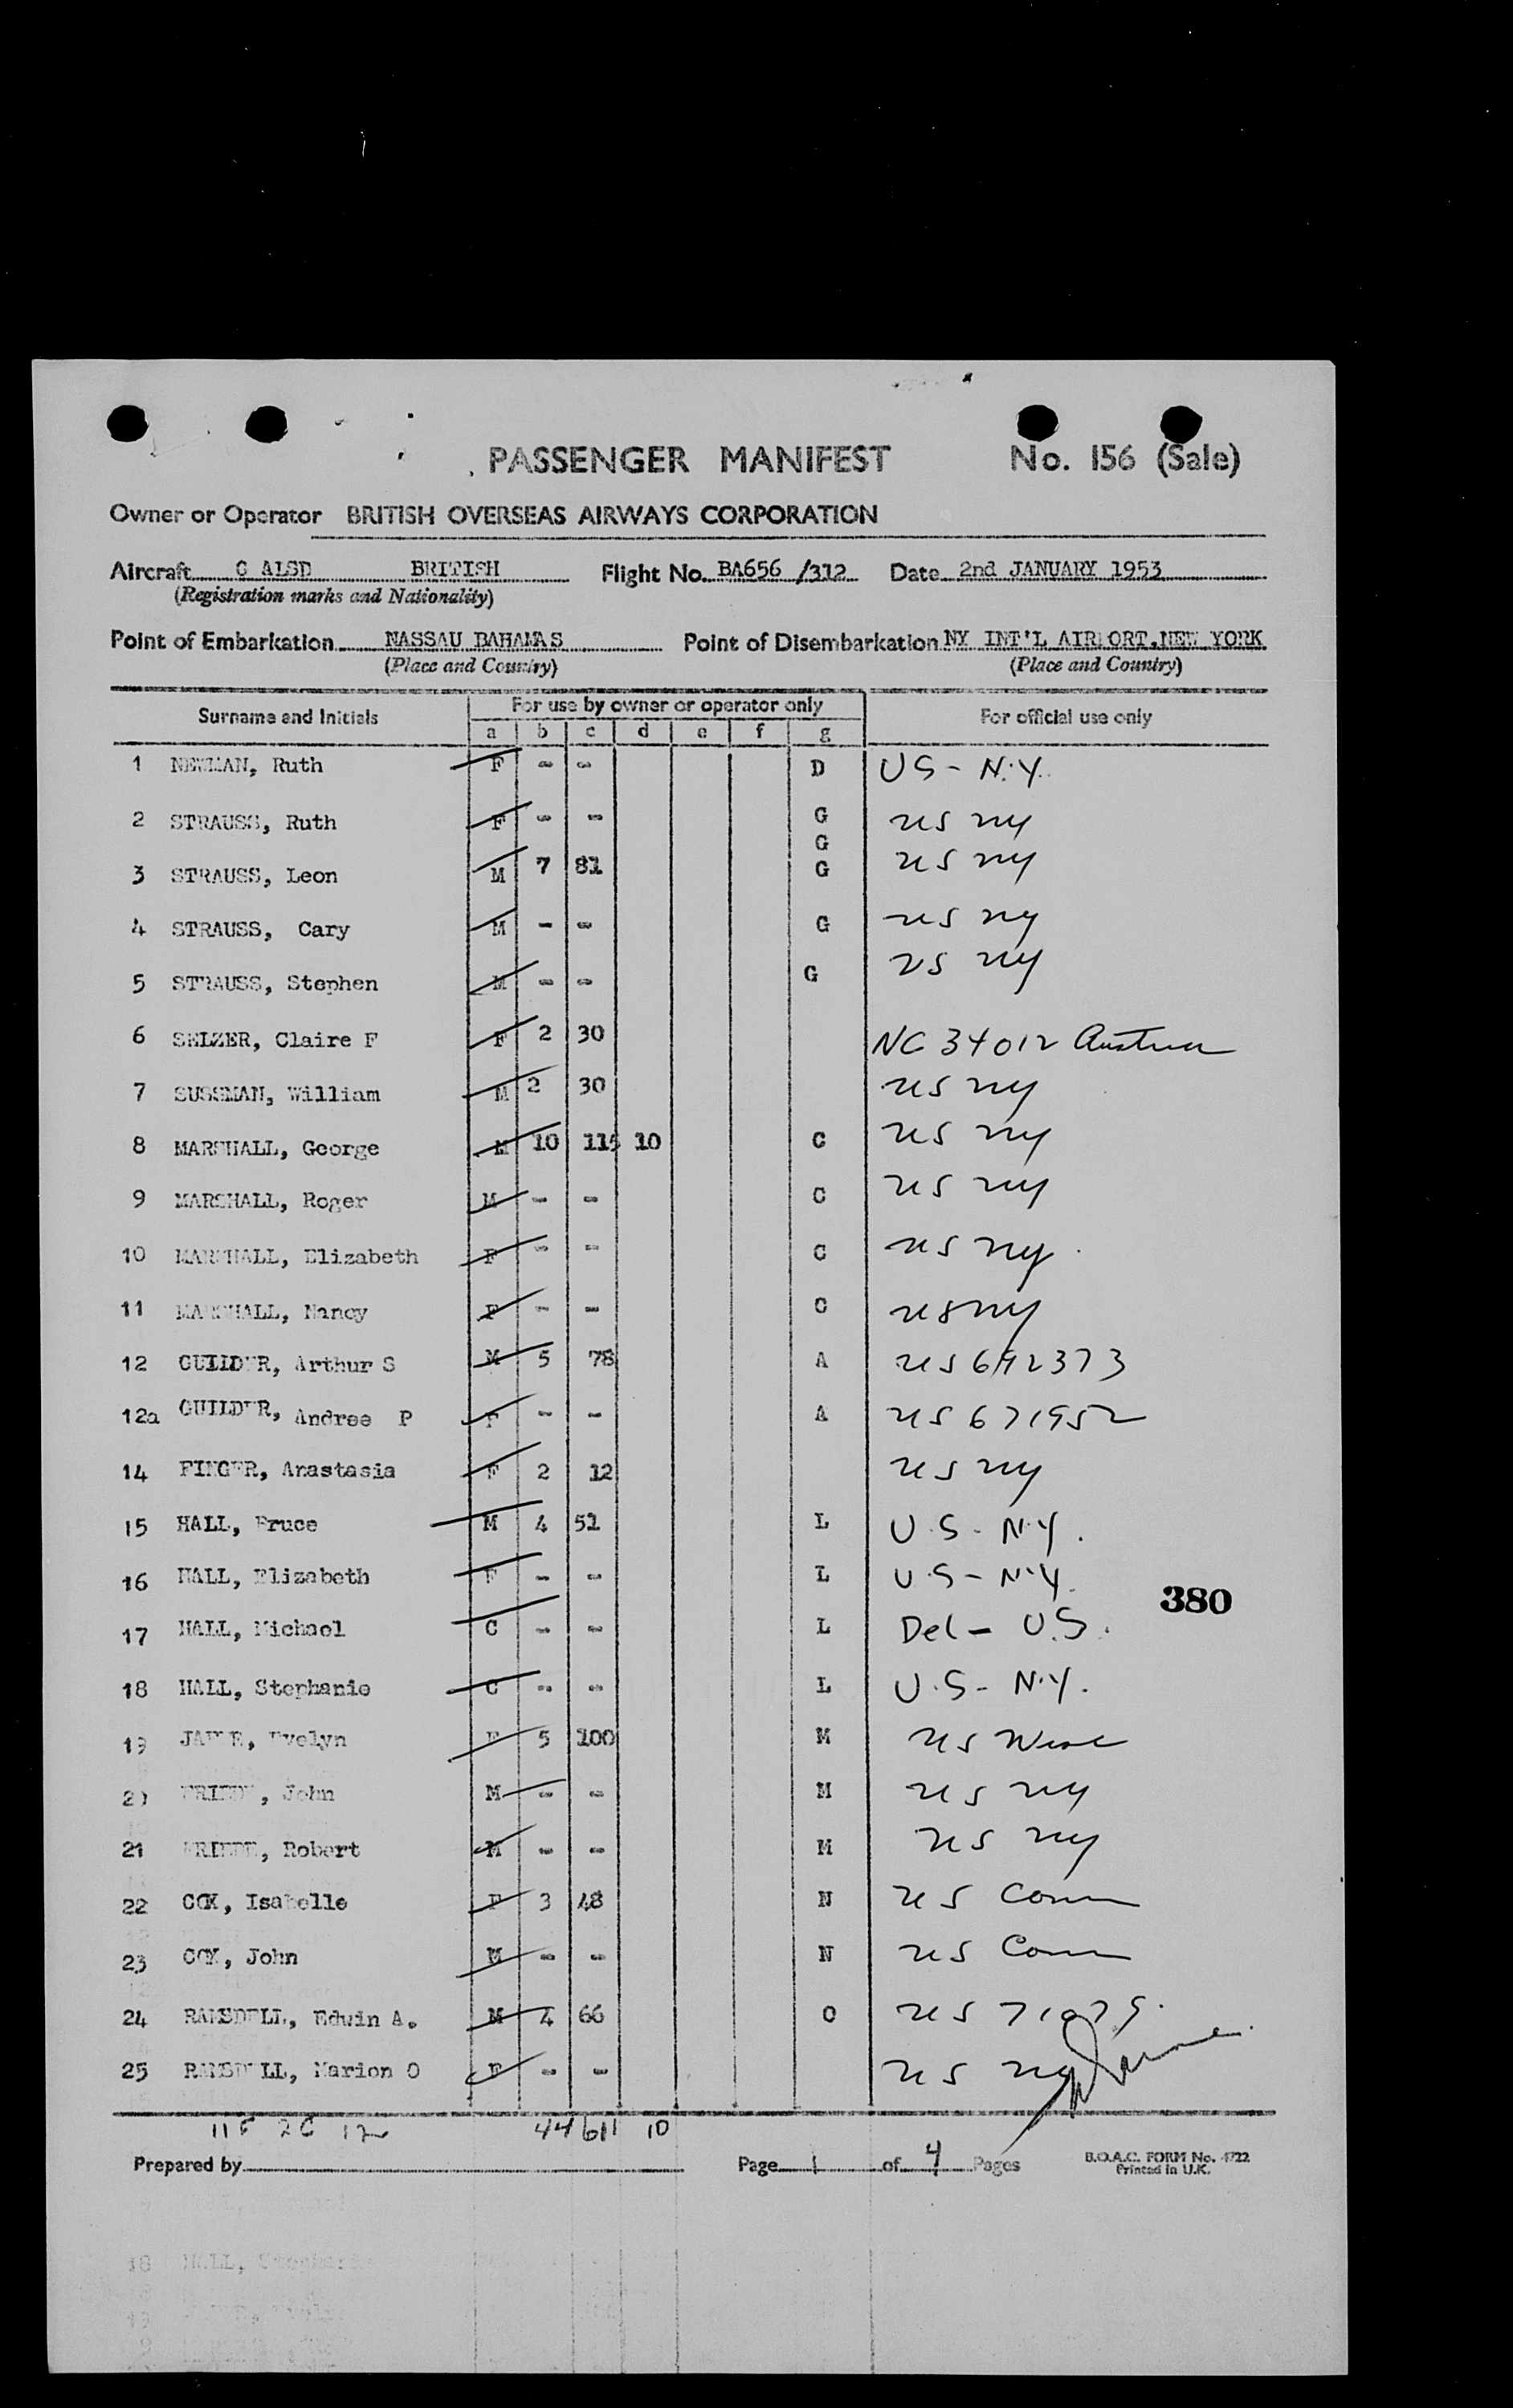 PASSENGER MANIFEST No. 156 (Sale)
Owner or Operator BRITISH OVERSEAS AIRWAYS CORPORATION
Aircraft G ALSD BRITISH Flight No. BA656 /312 Date 2nd JANUARY 1953
(Registration marks and Nationality)
Point of Embarkation NASSAU BAHAMAS Point of Disembarkation NY INT'L AIRPORT, NEW YORK
(Place and Country) (Place and Country)
Surname and Initials For use by owner or operator only For official use only
a b c d e f g
1 NEWMAN, Ruth F - - D US - N.Y.
2 STRAUSS, Ruth F - - G US NY
G
3 STRAUSS, Leon M 7 81 G US NY
4 STRAUSS, Cary M - - G US NY
5 STRAUSS, Stephen M - - G US NY
6 SELZER, Claire F F 2 30 NC 34012 Austria
7 SUSSMAN, William M 2 30 US NY
8 MARSHALL, George M 10 115 10 C US NY
9 MARSHALL, Roger M - - C US NY
10 MARSHALL, Elizabeth F - - C US NY
11 MARSHALL, Nancy F - - C US NY
12 GUILDER, Arthur S M 5 78 A US 692373
12a GUILDER, Andree P F - - A US 671952
14 FINGER, Anastasia F 2 12 US NY
15 HALL, Bruce M 4 51 L U.S - N.Y.
16 HALL, Elizabeth F - - L U.S - N.Y.
380
17 HALL, Michael C - - L Del - U.S.
18 HALL, Stephanie C - - L U.S - N.Y.
19 Evelyn F 5 100 M US
20 John M - - M US NY
21 FRIEDE, Robert M - - M US NY
22 COX, Isabelle F 3 48 N US Conn
23 COX, John M - - N US Conn
24 RAMSDELL, Edwin A. M 4 66 O US 71079
25 RAMSDELL, Marion O F - - US NY
11F 2C 12 44 611 10
Prepared by Page 1 of 4 Pages B.O.A.C. FORM No. 4722
Printed in U.K.
18 HALL, Stephanie
19